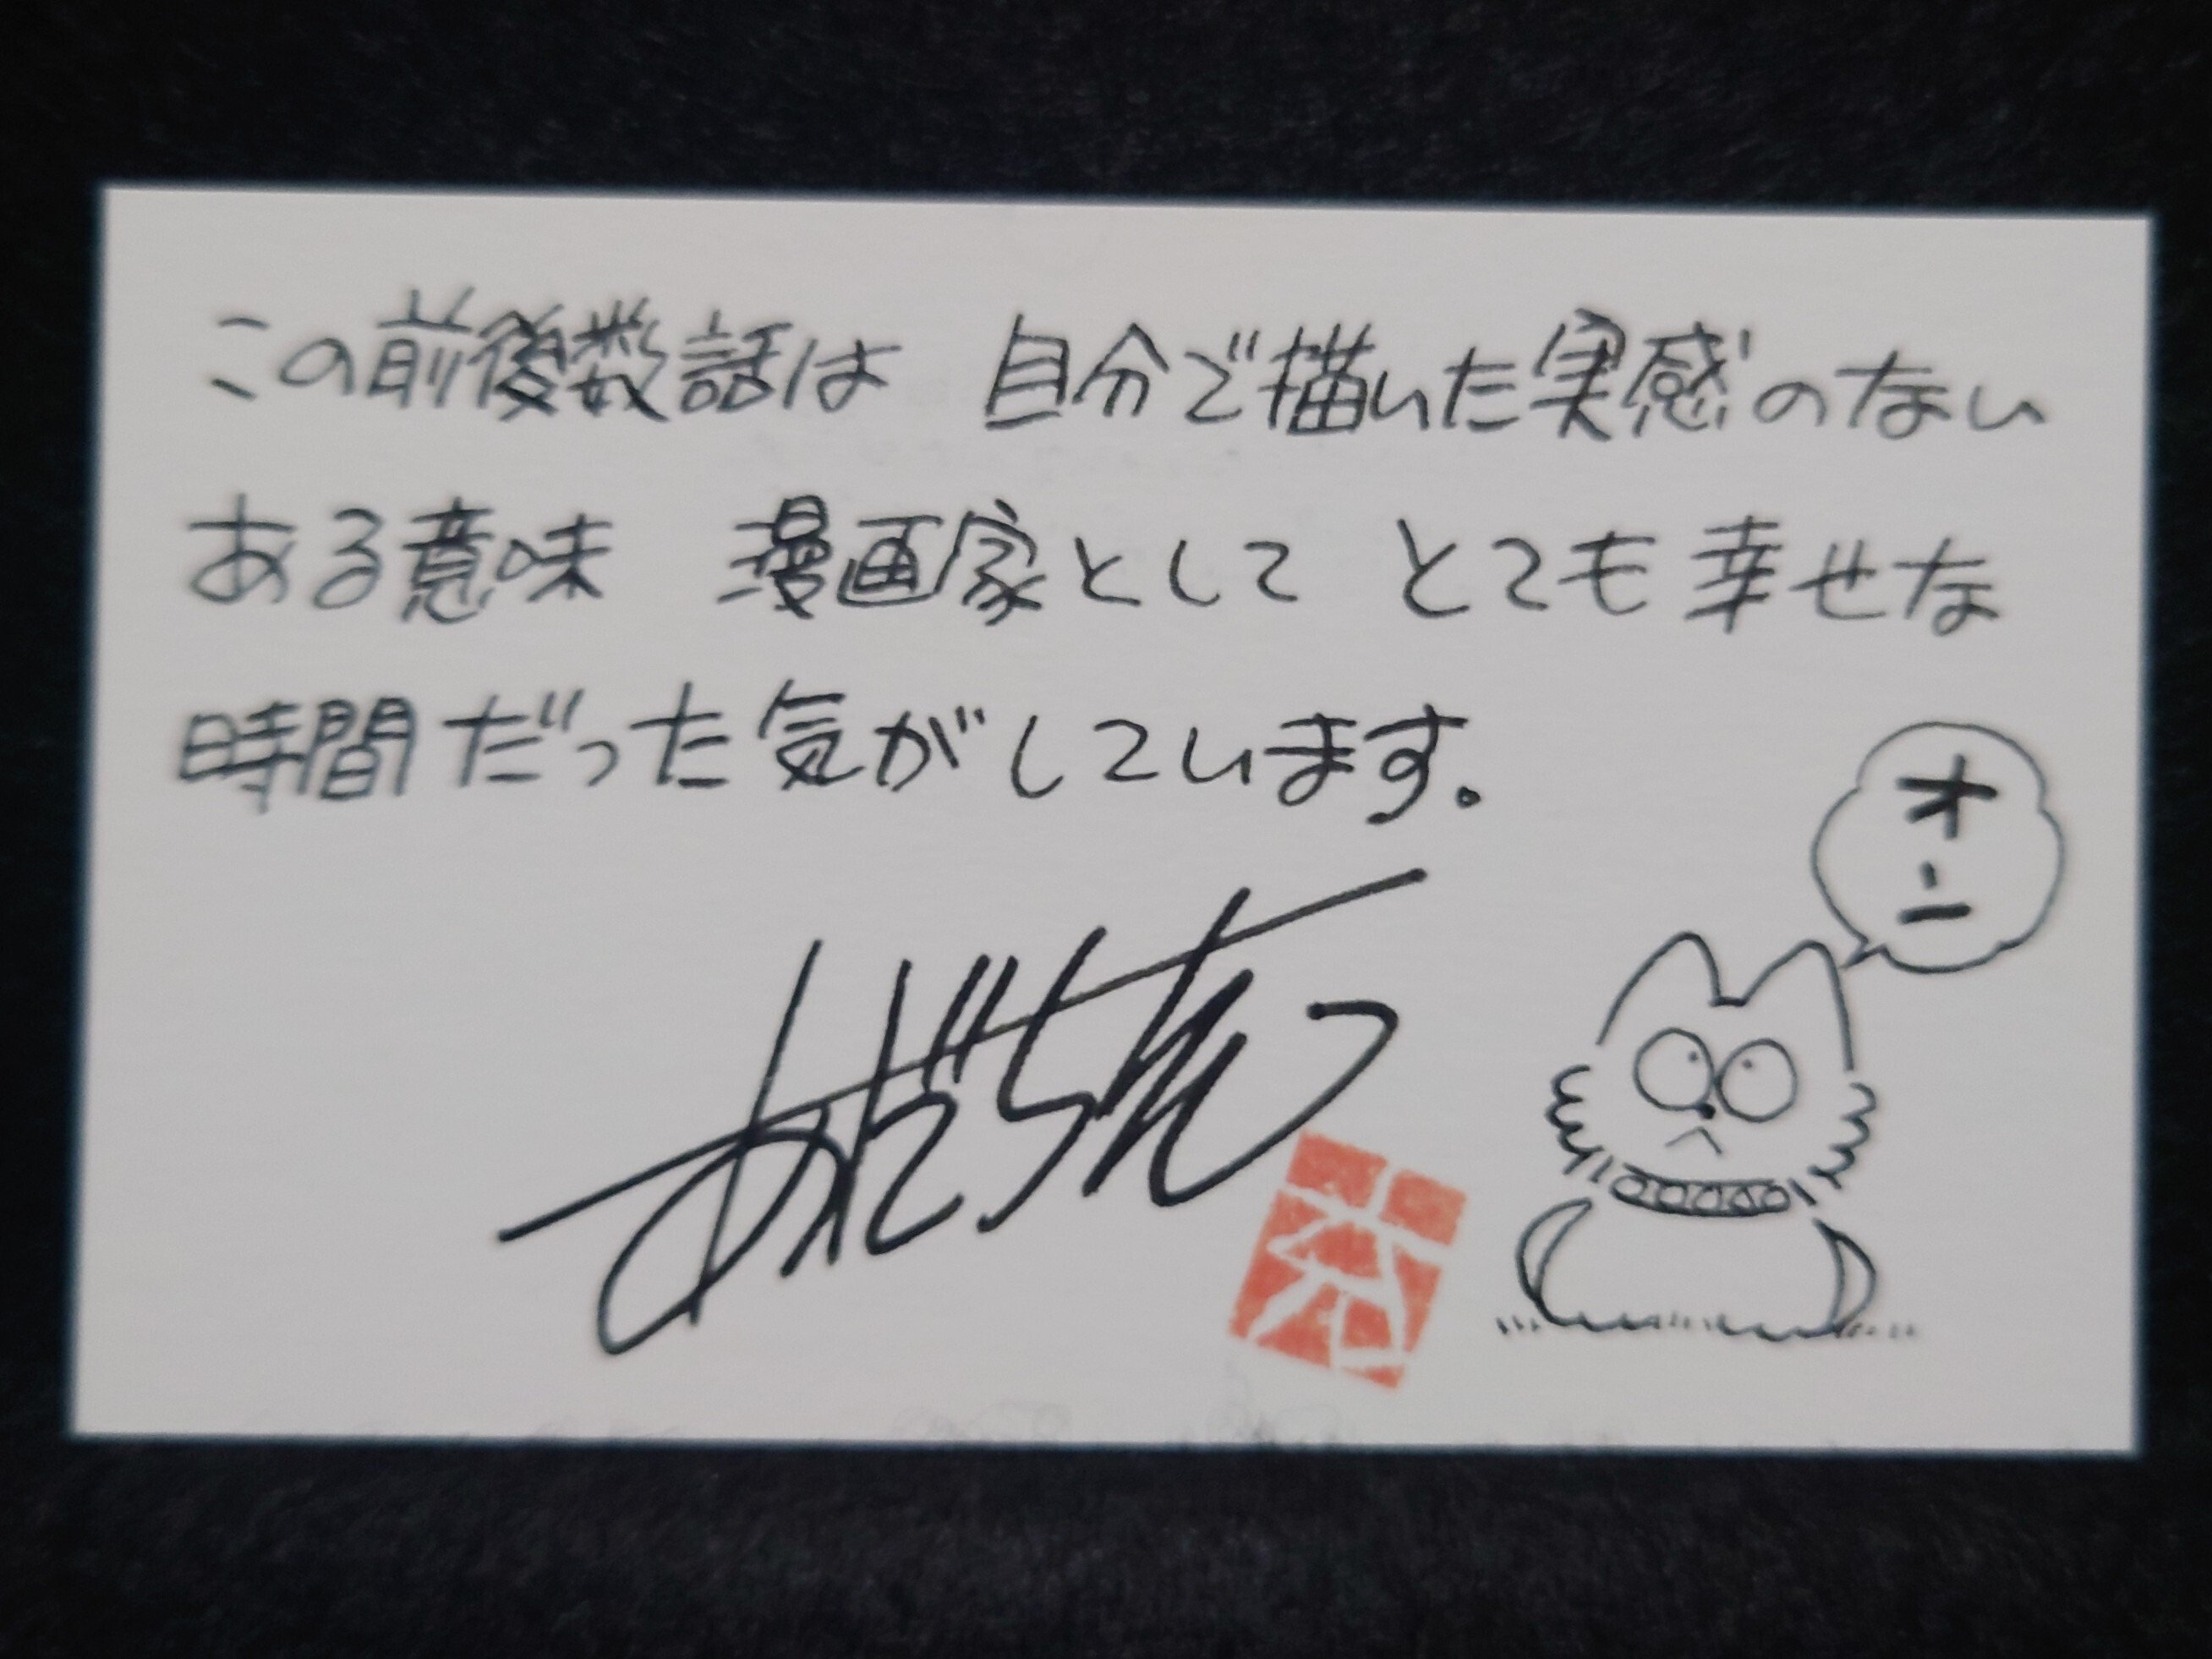 この前後数話は 自分で描いた実感のない
ある意味 漫画家として とても幸せな
時間だった気がしています.
オン
あだち充